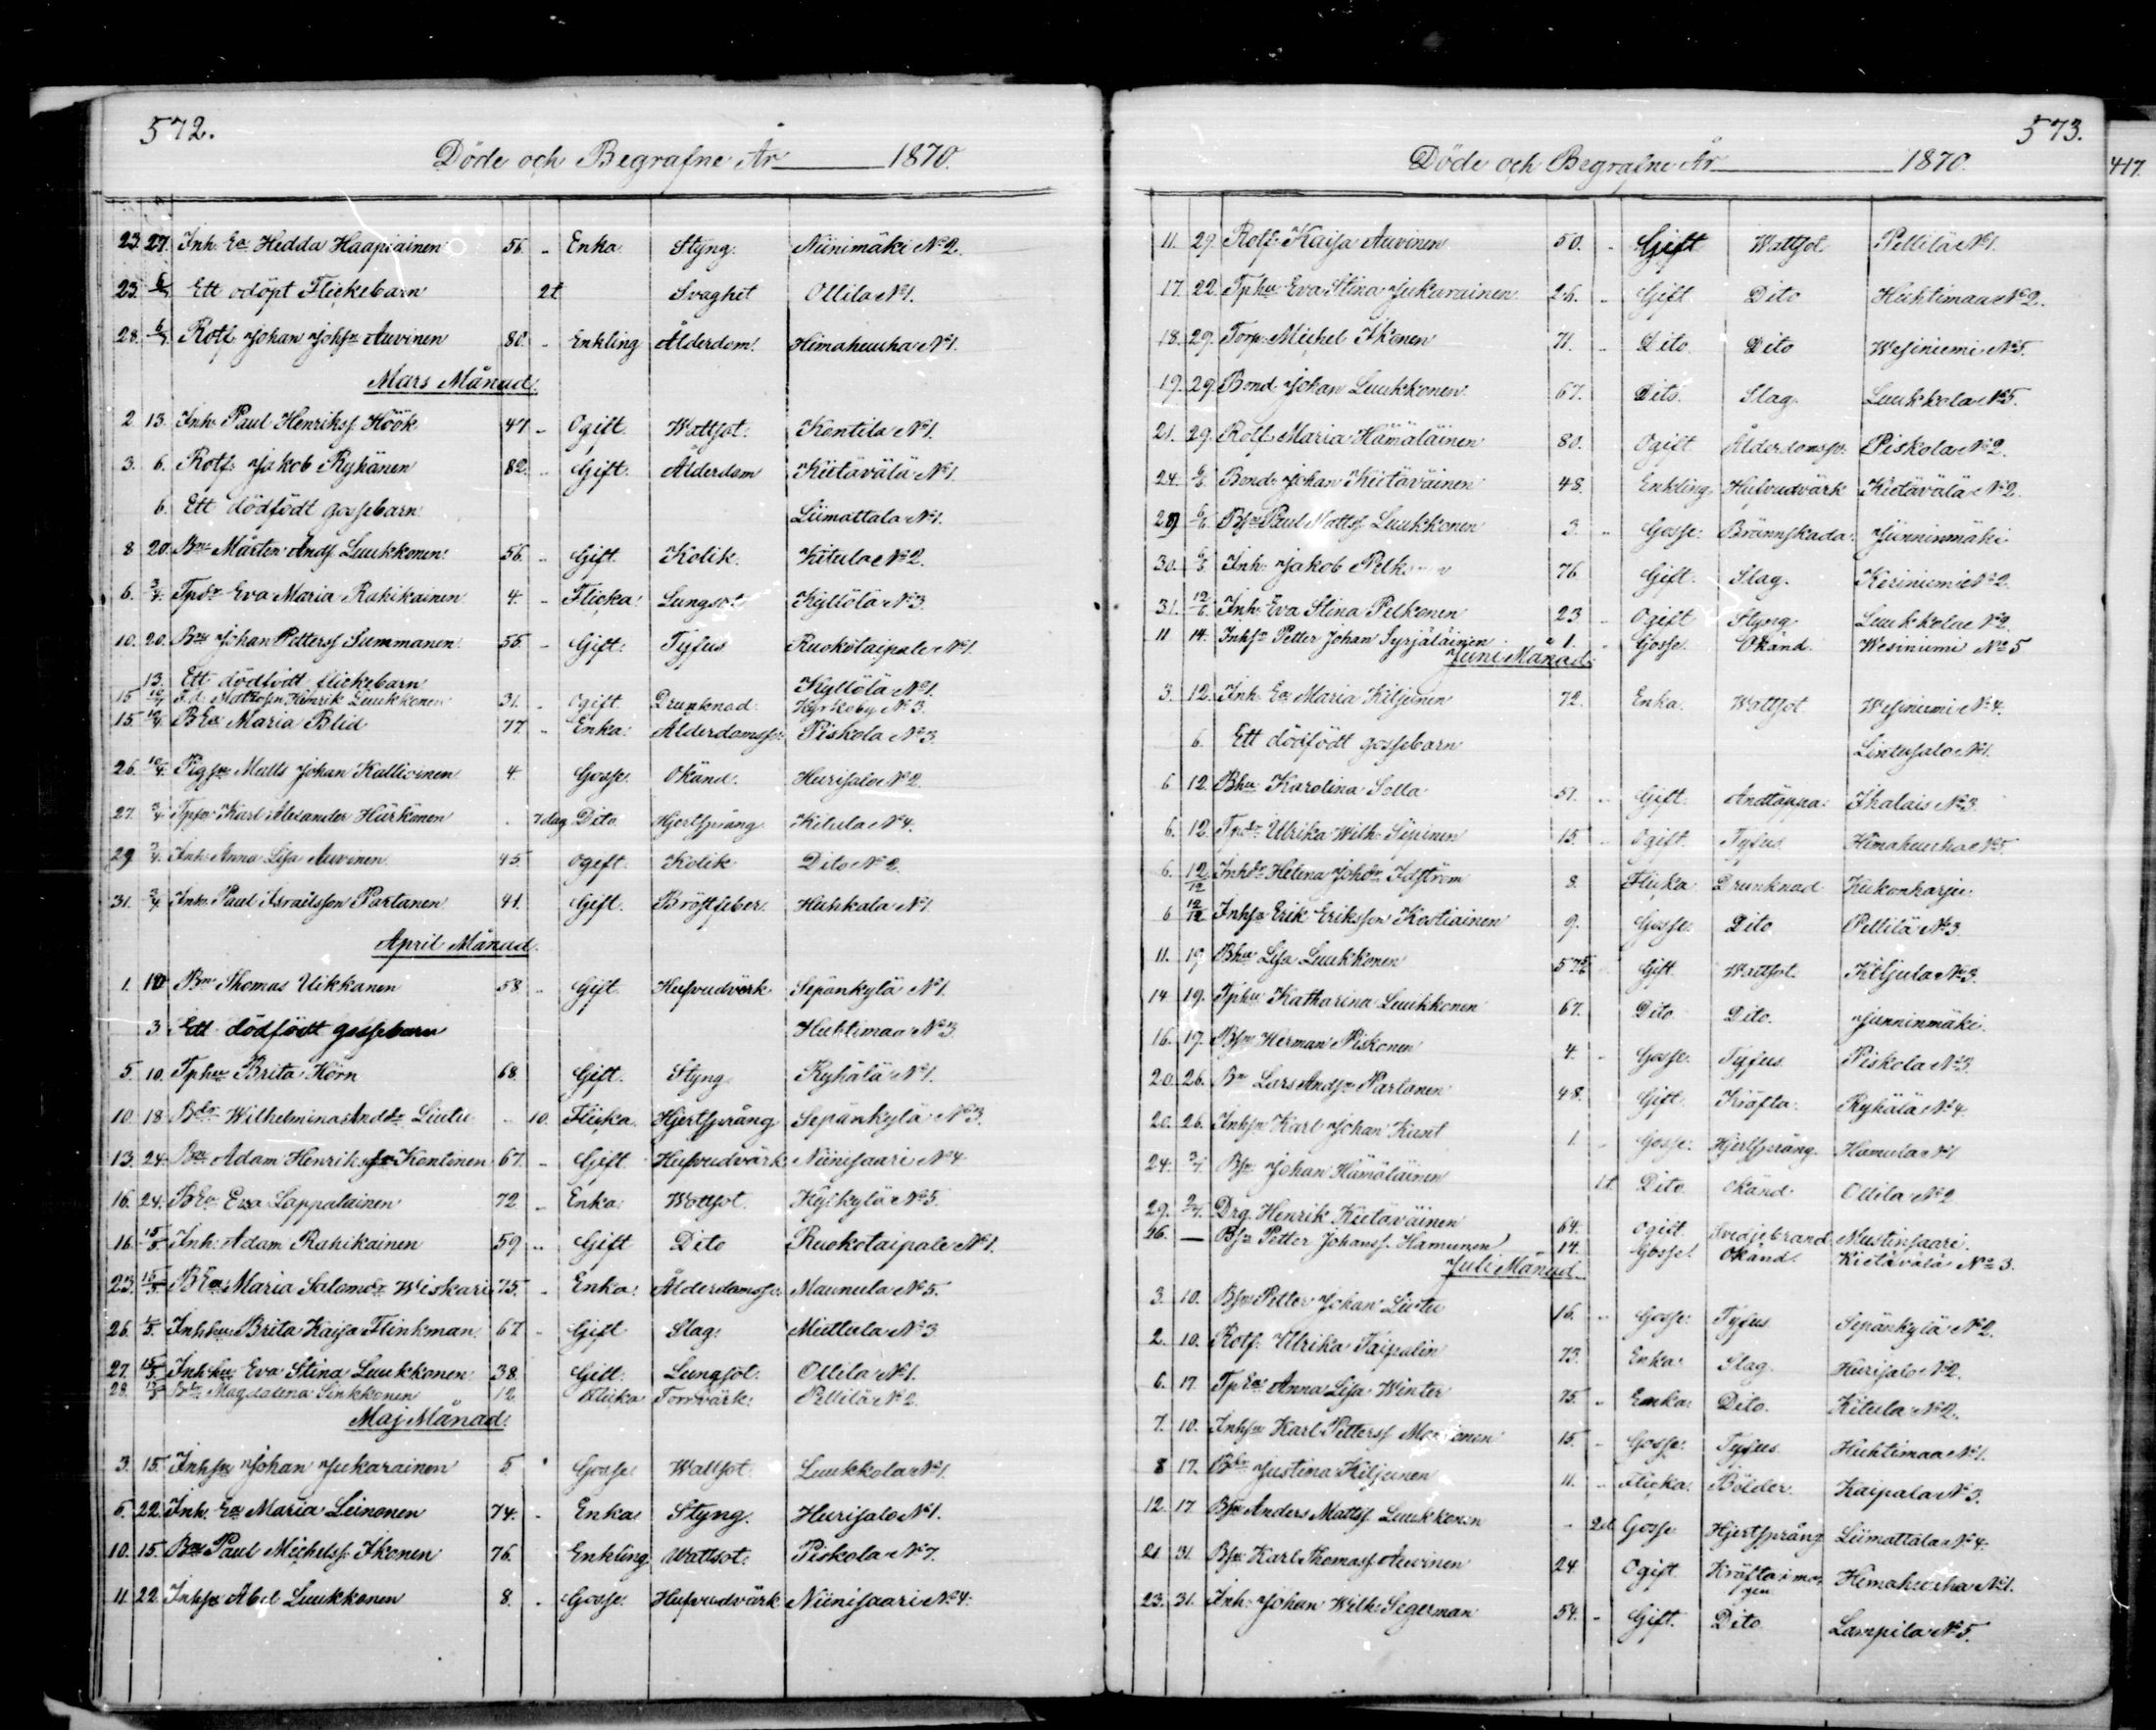 572.
Döde och Begrafne År 1870.
23. 27. Inh. Ea Hedda Haapiainen 56. - Enka Styng. Niinimäki No 2.
23. 6/3 Ett odöpt Flickebarn 2t Svaghet Ollila No 1.
28. 6/3 Rotf. Johan Johsn Auvinen 80. - Enkling Ålderdom. Himahuuha No 1.
Mars Månad.
2 13. Inh. Paul Henrikss. Höök 47 - Ogift. Wattsot. Kontila No 1.
3. 6. Rotf. Jakob Ryhänen 82. - Gift. Ålderdom Kietävälä No 1.
6. Ett dödfödt gossebarn Liimattala No 1.
8 20. Bn Mårten Ands Luukkonen 56. - Gift. Kolik. Kitula No 2.
6. 3/4 Tpdr Eva Maria Rahikainen 4. - Flicka. Lungsot Kyllölä No 3.
10. 20. Bn Johan Petterss Summanen 55 - Gift. Tyfus Ruokotaipale No 1.
13. Ett dödfödt flickebarn Kyllölä No 1.
15 10/4 F.d. Henrik Luukkonen 31. - Ogift. Drunknad. Kyrkoby No 3.
15. 10/4 BEa Maria Blid 77 - Enka. Ålderdomssv. Piskola No 3.
26. 10/4 Matts Johan Kallioinen 4. Gosse. Okänd. Hurisalo No 2.
27. 3/4 Tpsn Karl Alexander Hürkönen . 7dag Dito Hjertsprång Kitula No 4.
29 3/4. Inh. Anna Lisa Auvinen 45 Ogift. Kolik Dito No 2.
31. 3/4 Inh. Paul Israelsson Partanen 41. Gift. Bröstfeber. Huhkala No 1
April Månad.
1. 10 Bn Thomas Ukkanen 58 - Gift Hufvudvärk Sepänkylä No 1.
3 Ett dödfödt gossebarn Huhtimaa No 3
5. 10. Tphu Brita Hörn 68. Gift. Styng. Ryhälä No 1.
10. 18 Bdr Wilhelmina Andsdr Liutu - 10. Flicka. Hjertsprång Sepänkylä No 3.
13. 24. Bn Adam Henrikssn Kontinen 67. - Gift. Hufvudvärk Niinisaari No 4
16. 24. BEa Eva Lappalainen 72 - Enka. Wattsot. Kylkylä No 5.
16. 15/5 Inh. Adam Rahikainen 59 .. Gift Dito Ruokotaipale No 1.
23. 15/5 BEa Maria Salomdr Wiskari 75. - Enka. Ålderdomssv. Maunula No 5.
26. 1/5. Inhhu Brita Kajsa Flinkman. 67 - Gift Slag. Miettula No 3.
27. 15/5 Inhhu Eva Stina Luukkonen 38. Gift. Lungsot. Ollila No 1.
28. 15/5 Bdr Magdalena Sinkkonen 12. Flicka Torrvärk. Pellilä No 2.
Maj Månad.
3. 15. Inhsn Johan Jukarainen 5. Gosse. Wattsot. Luukkola No 1.
5. 22. Inh. Ea Maria Leinonen 74. - Enka Styng. Hurisalo No 1.
10. 15. Bn Paul Michelss. Ikonen 76. Enkling Wattsot. Piskola No 7.
11. 22. Inhsn Abel Luukkonen 8. - Gosse. Hufvudvärk Niinisaari No 4.
573.
Döde och Begrafne År 1870.
11. 29. Rotf. Kajsa Auvinen 50. - Gift Wattsot. Pellilä No 1.
17. 22. Tphu Eva Stina Jukarainen 26. - Gift. Dito Huhtimaa No 2.
18. 29. Torp. Michel Ikonen 71. - Dito. Dito Wesiniemi No 5.
19. 29. Bond. Johan Luukkonen 67. Dito. Slag. Luukkola No 5.
21. 29. Rotf. Maria Hämäläinen 80. Ogift Ålderdomssv. Piskola No 2.
24. 6/6 Bond. Johan Kietäväinen 48. Enkling Hufvudvärk Kietävälä No 2.
29 6/6 Bsn Paul Matts. Luukkonen 3. - Gosse. Brännskada. Junninmäki
30. 6/6 Inh. Jakob 76. Gift. Slag. Keriniemi No 2.
31. 12/6 Inh. Eva Stina Pelkonen 23 - Ogift Styng Luukkola No 2.
11 14. Inhsn Petter Johan Syrjäläinen 1. - Gosse. Okänd. Wesiniemi No 5
Juni Månad.
3. 12. Inh. Ea Maria Kiljunen 72. Enka. Wattsot Wesiniemi No 4.
6. Ett dödfödt gossebarn Lintusalo No 1.
6 12 Bhu Karolina Solla 51. - Gift. Andtäppa. Ihalais No 3.
6. 12. Tpdr Ulrika Wilh. Sipinen 15. - Ogift. Tyfus. Himahuuha No 5.
6. 12/12 Inhdr Helena Johdr Idström 8. Flicka Drunknad Kukonharju
6 12/12 Inhsn Erik Eriksson Kostiainen 9. Gosse. Dito Pellilä No 3
11. 19 Bhu Lisa Luukkonen 57 Gift. Wattsot. Kiljula No 3.
14 19. Tphu Katharina Luukkonen 67. - Dito Dito. Junninmäki
16. 19. Bsn Herman Piskonen 4. - Gosse. Tyfus Piskola No 3.
20. 26. Bn Lars Andsn Partanen 48. Gift. Kräfta. Ryhälä No 4
20. 26. Inhsn Karl Johan Kant 1. - Gosse. Hjertsprång. Hamula No 1
24. 3/7. Bsn Johan Hämäläinen 1t Dito Okänd Ollila No 2
29. 3/7. Drg. Henrik Kietäväinen 64. Ogift. Svedjebrand Mustinsaari.
26. — Bsn Petter Johanss. Hamunen 14. Gosse. Okänd. Kietävälä No 3.
Juli Månad.
3. 10. Bsn Petter Johan Liutu 16. .. Gosse. Tyfus Sepänkylä No 2.
2. 10. Rotf. Ulrika Taipalin 73. Enka. Slag. Hurisalo No 2.
6. 17 TpEa Anna Lisa Winter 75. - Enka. Dito. Kitula No 2.
7. 10. Inhsn Karl Petterss 15. - Gosse. Tyfus Huhtimaa No 1.
8 17. Bdr Justina Kiljunen 11. - Flicka. Bölder. Kaipala No 3.
12. 17 Bsn Anders Matts. Luukkonen - 2d. Gosse Hjertsprång Liimattala No 4.
21 31. Bsn Karl Thomass. Auvinen 24. Ogift Kräfta i magen. Himahuuha No 1.
23. 31. Inh. Johan Wilh. Segerman 54. - Gift. Dito Lampila No 5.
417.